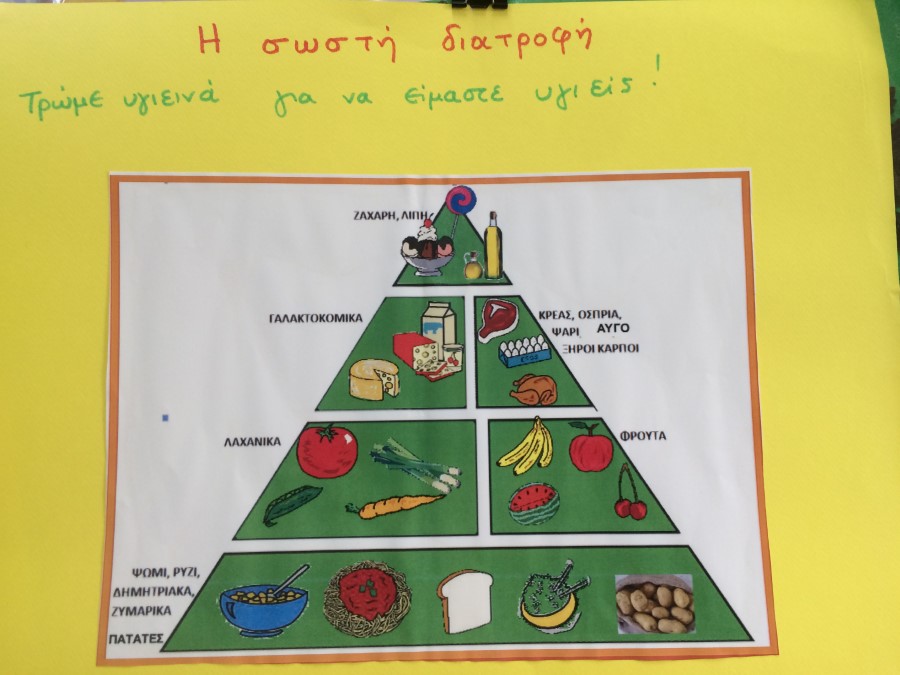 Η σωστή διατροφή
Τρώμε υγιεινά για να είμαστε υγιείς!
ΖΑΧΑΡΗ, ΛΙΠΗ
ΓΑΛΑΚΤΟΚΟΜΙΚΑ
ΚΡΕΑΣ, ΟΣΠΡΙΑ,
ΨΑΡΙ ΑΥΓΟ
ΞΗΡΟΙ ΚΑΡΠΟΙ
ΛΑΧΑΝΙΚΑ
ΦΡΟΥΤΑ
ΨΩΜΙ, ΡΥΖΙ,
ΔΗΜΗΤΡΙΑΚΑ,
ΖΥΜΑΡΙΚΑ
ΠΑΤΑΤΕΣ